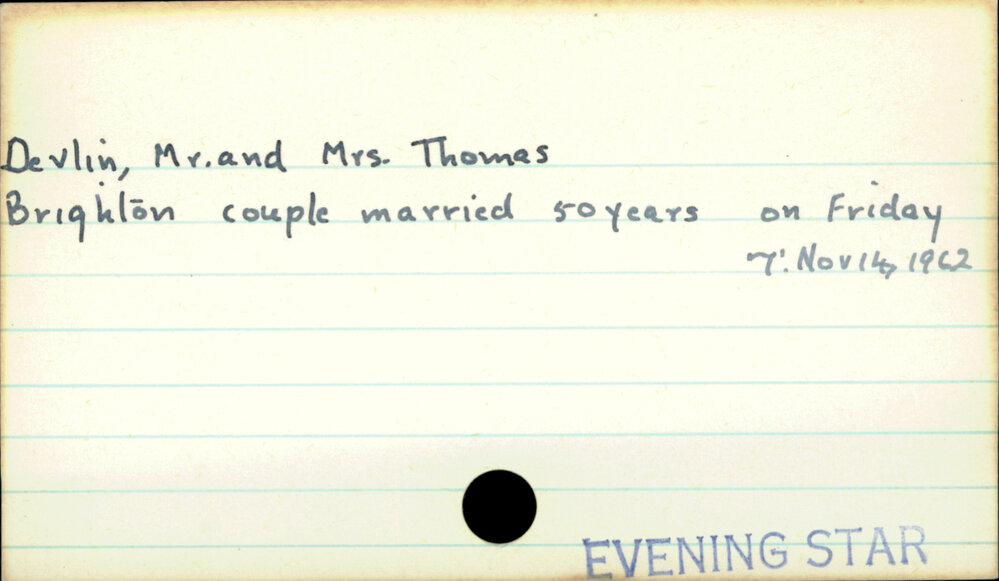 Devlin, Mr. and Mrs. Thomas
Brighton couple married 50 years on Friday
7: Nov 14, 1962
EVENING STAR